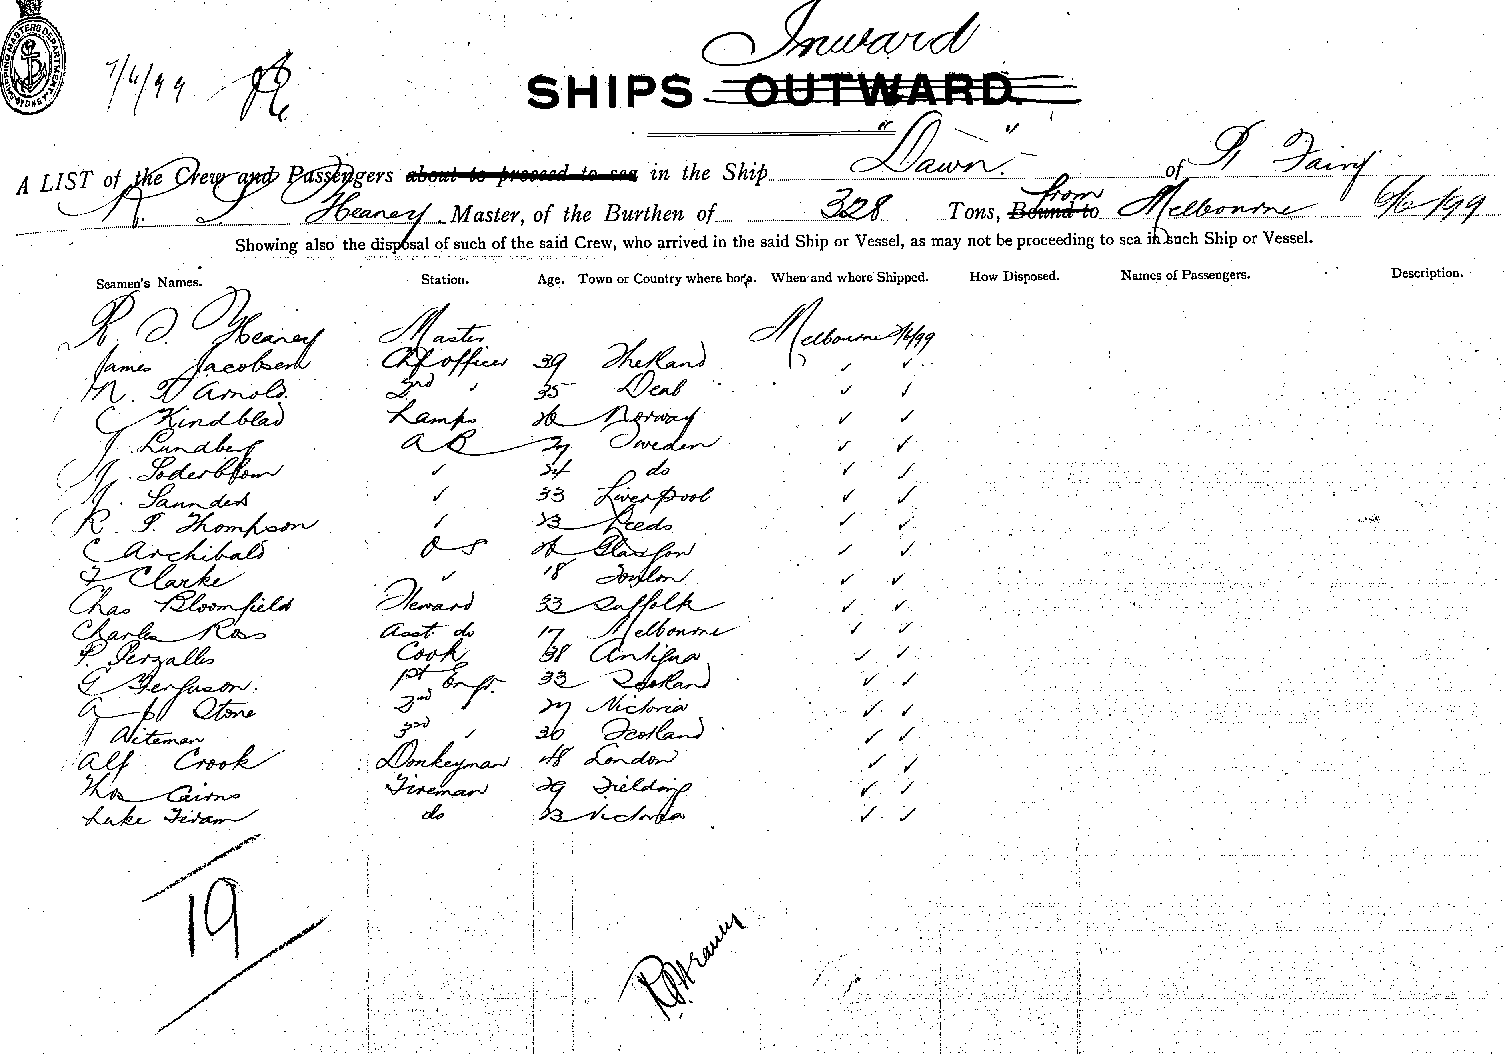 Inward
7/6/99
SHIPS OUTWARD.
A LIST of the Crew and Passengers about to proceed to sea in the Ship "Dawn" of P Fairy
R. J Heaney Master, of the Burthen of 328 Tons, Bound to from Melbourne 6/6/99
Showing also the disposal of such of the said Crew, who arrived in the said Ship or Vessel, as may not be proceeding to sea in such Ship or Vessel.
Seamen's Names. Station. Age. Town or Country where born. When and where Shipped. How Disposed. Names of Passengers. Description.
R J Heaney Master Melbourne /6/99
James Jacobsen Chf officer 39 ✓ ✓
N. D Arnold. 2nd " 35 Deal ✓ ✓
C Kindblad Lamps 26 Norway ✓ ✓
J. Lundberg A B 27 Sweden ✓ ✓
J. Soderblom ✓ 24 do ✓ ✓
J. Saunders ✓ 33 Liverpool ✓ ✓
R. P. Thompson ✓ 23 Leeds ✓ ✓
C Archibald O S 26 Glasgow ✓ ✓
F Clarke ✓ 18 ✓ ✓
Chas Bloomfield Steward 33 Suffolk ✓ ✓
Charles Ross Asst. do 17 Melbourne ✓ ✓
P. 38 Cook Antigua ✓ ✓
G Ferguson. 1st Engr. 33 Scotland ✓ ✓
A Stone 2nd " 27 Victoria ✓ ✓
J Aiteman 3rd " 30 Scotland ✓ ✓
Alf Crook Donkeyman 48 London ✓ ✓
Thos Cairns Fireman 29 Fielding ✓ ✓
Luke do 23 Victoria ✓ ✓
19
R J Heaney